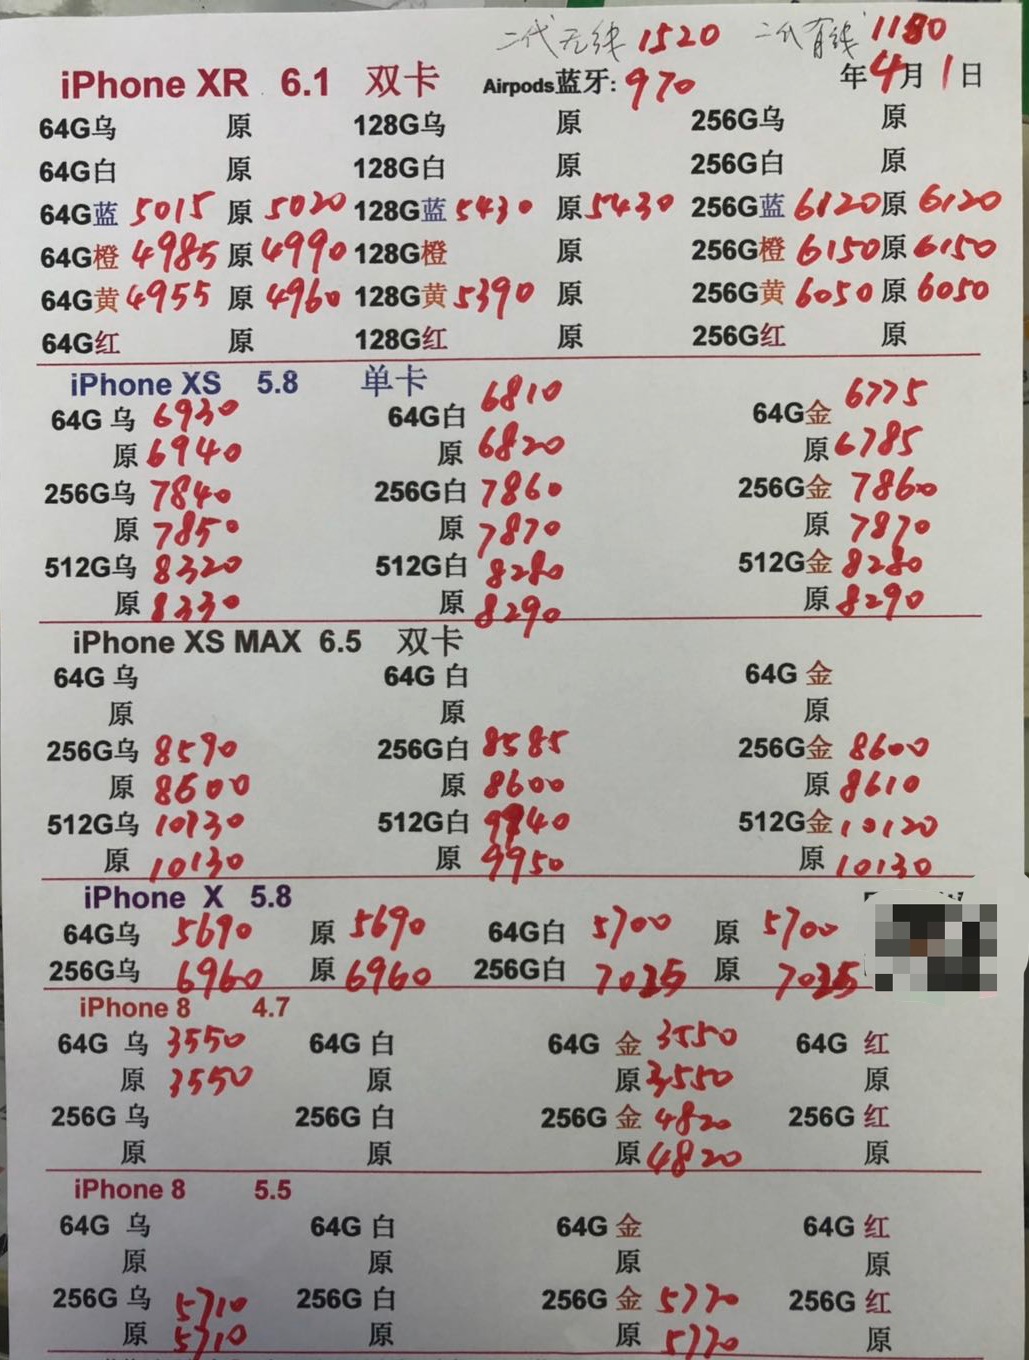 二代无线 1520 二代有线 1180
iPhone XR 6.1 双卡 Airpods蓝牙: 970 年4月1日
64G乌 原 128G乌 原 256G乌 原
64G白 原 128G白 原 256G白 原
64G蓝 5015 原 5020 128G蓝 5430 原 5430 256G蓝 6120 原 6120
64G橙 4985 原 4990 128G橙 原 256G橙 6150 原 6150
64G黄 4955 原 4960 128G黄 5390 原 256G黄 6050 原 6050
64G红 原 128G红 原 256G红 原
iPhone XS 5.8 单卡
64G 乌 6930 64G白 6810 64G金 6775
原 6940 原 6820 原 6785
256G乌 7840 256G白 7860 256G金 7860
原 7850 原 7870 原 7870
512G乌 8320 512G白 8280 512G金 8280
原 8330 原 8290 原 8290
iPhone XS MAX 6.5 双卡
64G 乌 64G 白 64G 金
原 原 原
256G乌 8590 256G白 8585 256G金 8600
原 8600 原 8600 原 8610
512G乌 10130 512G白 9940 512G金 10120
原 10130 原 9950 原 10130
iPhone X 5.8
64G乌 5690 原 5690 64G白 5700 原 5700
256G乌 6960 原 6960 256G白 7025 原 7025
iPhone 8 4.7
64G 乌 3550 64G 白 64G 金 3550 64G 红
原 3550 原 原 3550 原
256G 乌 256G 白 256G 金 4820 256G 红
原 原 原 4820 原
iPhone 8 5.5
64G 乌 64G 白 64G 金 64G 红
原 原 原 原
256G 乌 5710 256G 白 256G 金 5770 256G 红
原 5710 原 原 5770 原